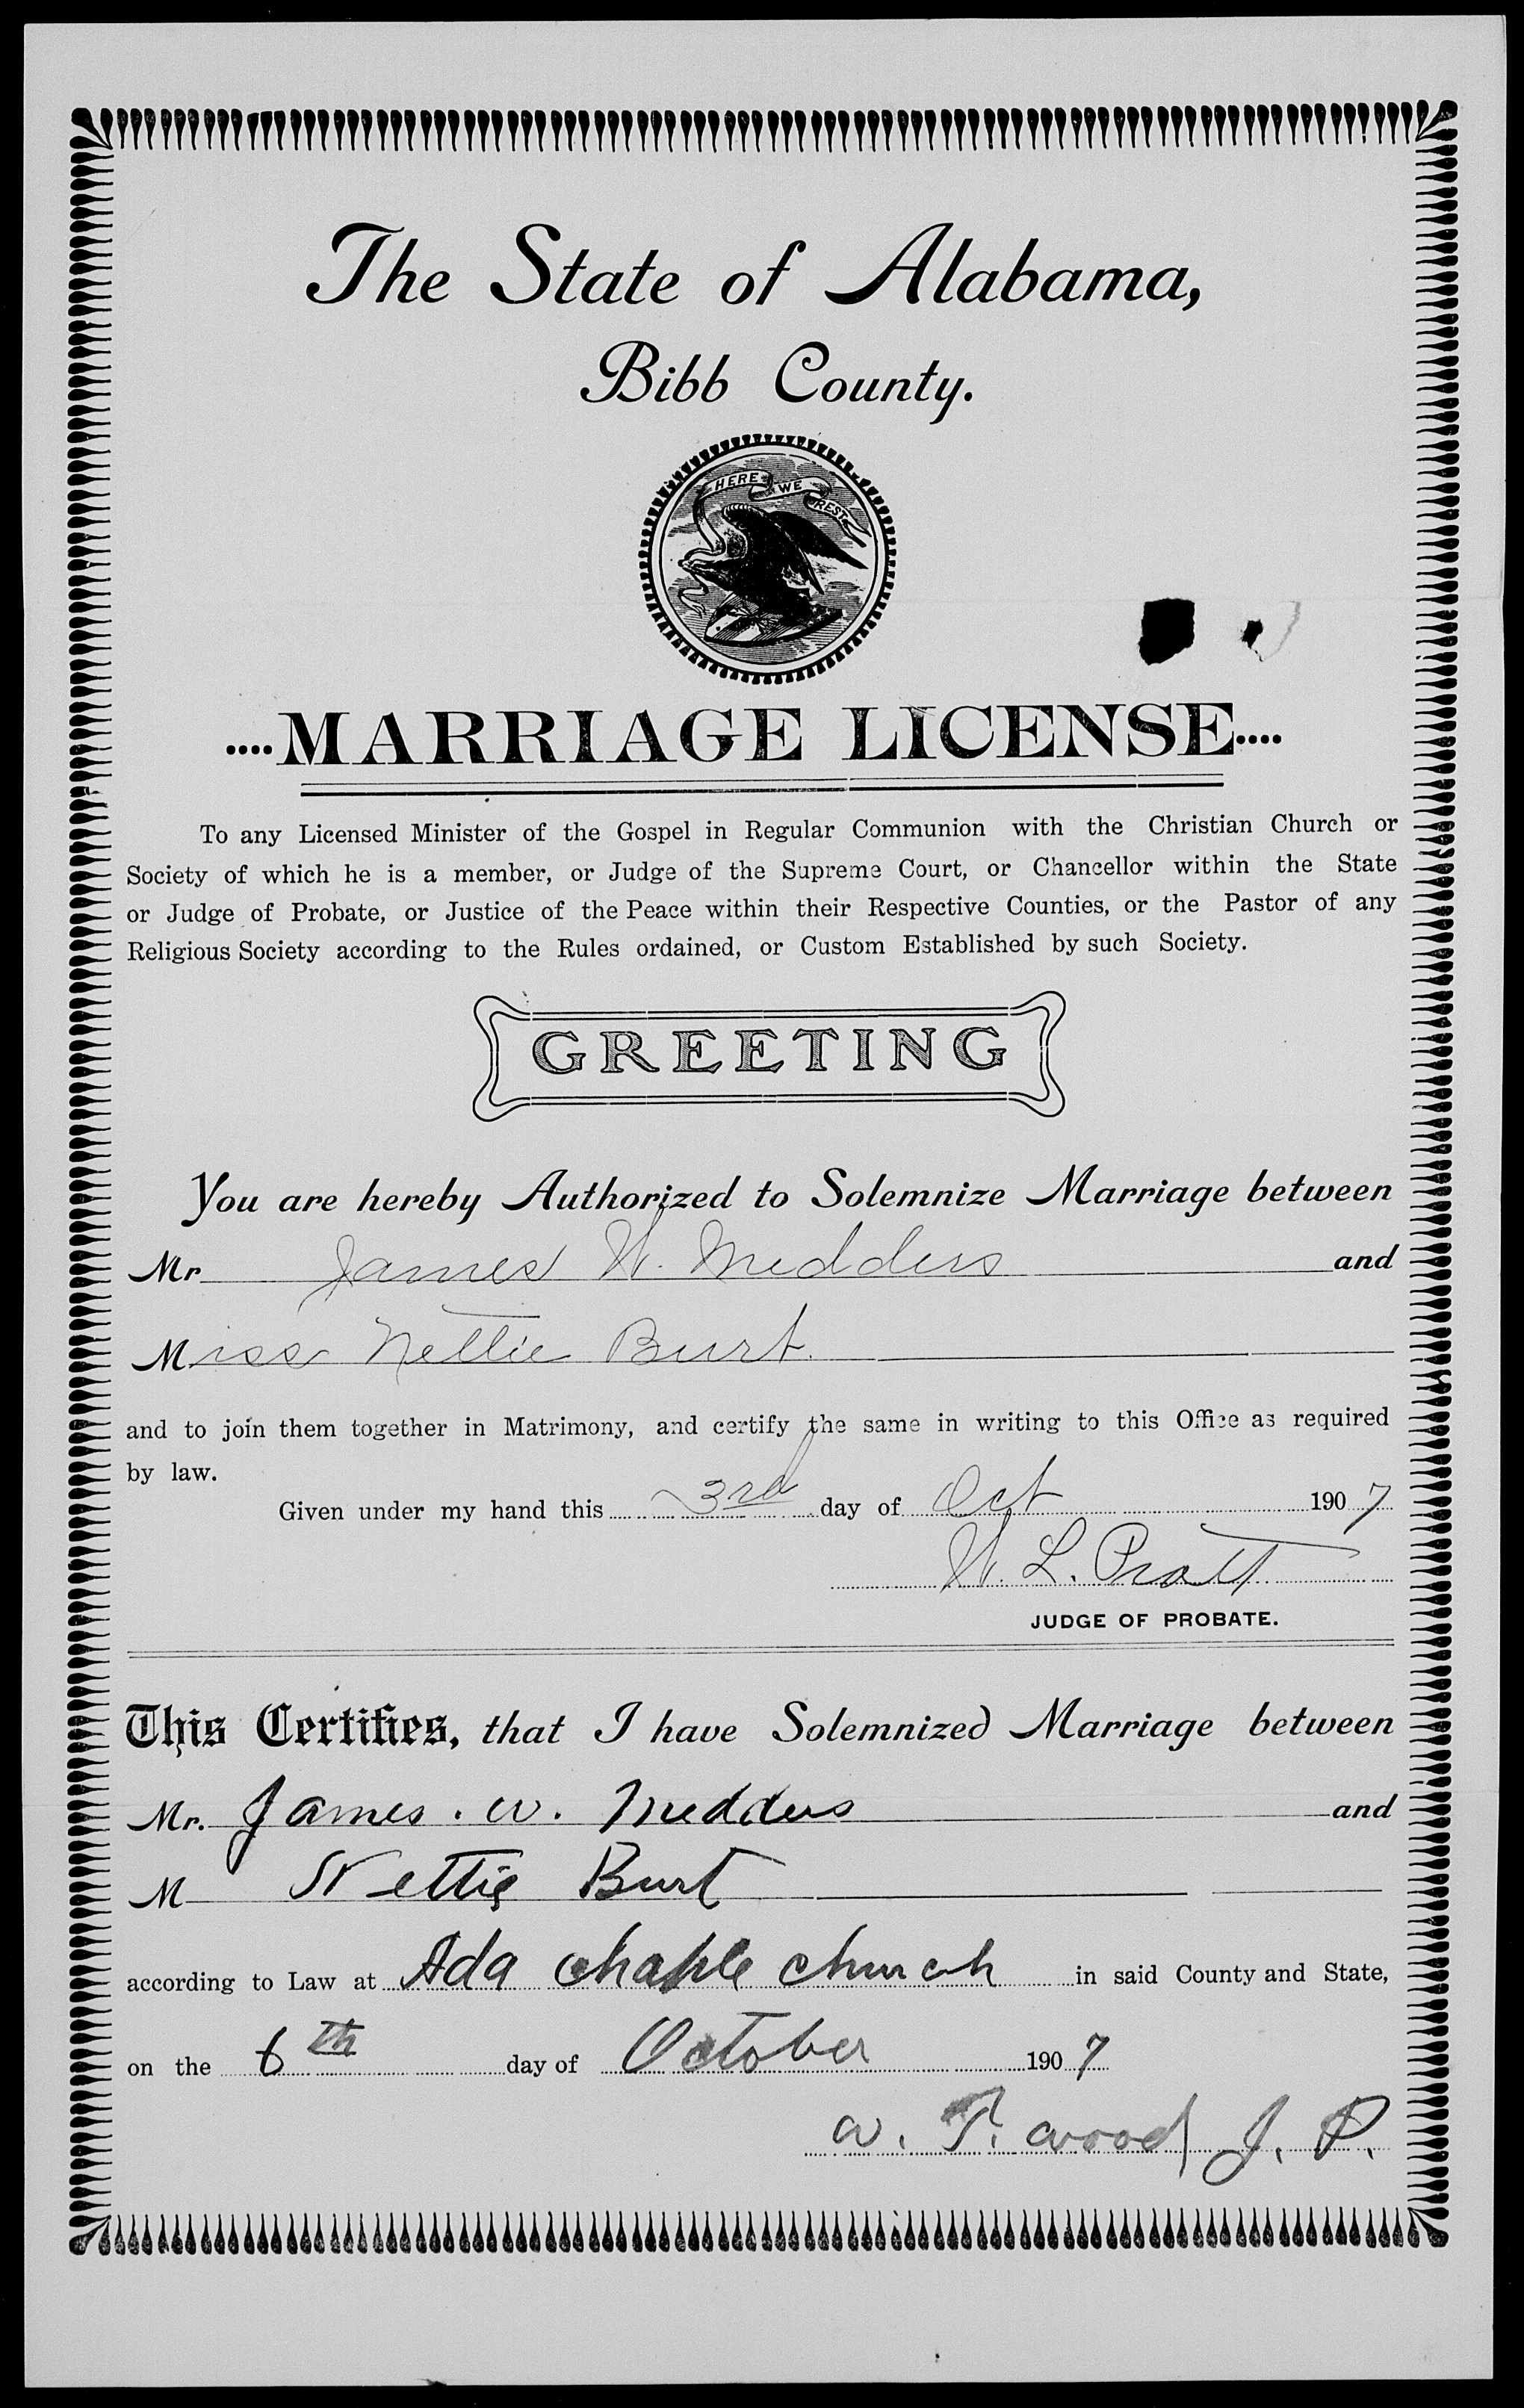 The State of Alabama,
Bibb County.
HERE WE REST
....MARRIAGE LICENSE....
To any Licensed Minister of the Gospel in Regular Communion with the Christian Church or
Society of which he is a member, or Judge of the Supreme Court, or Chancellor within the State
or Judge of Probate, or Justice of the Peace within their Respective Counties, or the Pastor of any
Religious Society according to the Rules ordained, or Custom Established by such Society.
GREETING
You are hereby Authorized to Solemnize Marriage between
Mr James W. Medders and
Miss Nettie Burt.
and to join them together in Matrimony, and certify the same in writing to this Office as required
by law.
Given under my hand this 3rd day of Oct 1907
W. L. Pratt
JUDGE OF PROBATE.
This Certifies, that I have Solemnized Marriage between
Mr. James. W. Medders and
M Nettie Burt
according to Law at Ada Chaple Church in said County and State,
on the 6th day of October 1907
W. T. Wood J. P.